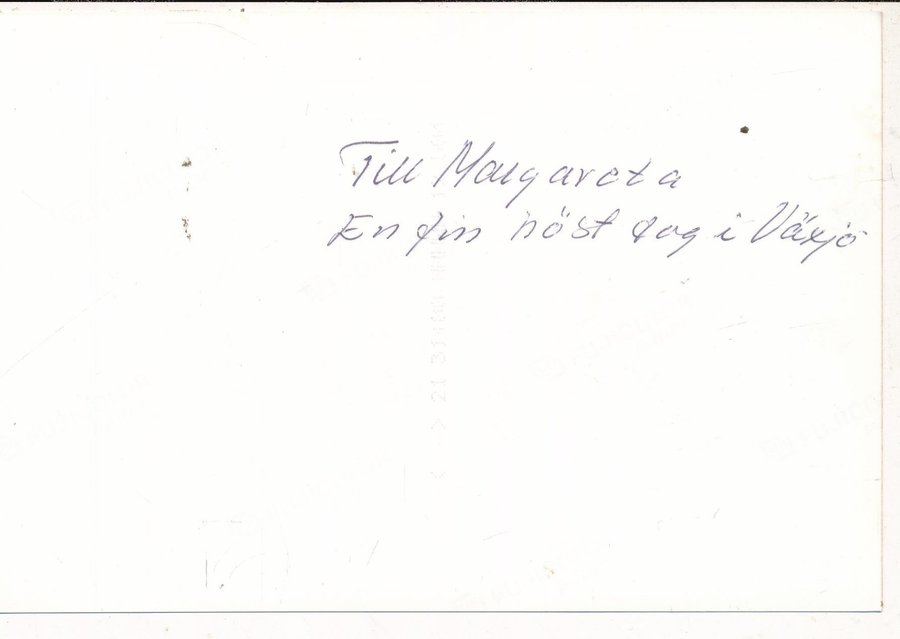 Till Margareta
En fin höst dag i Växjö